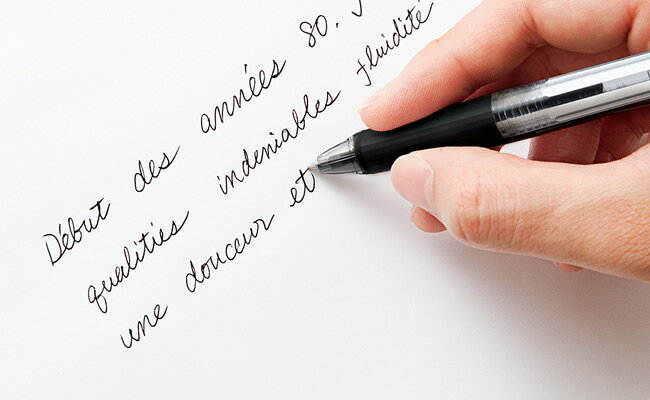 Début des années 80.
qualities indeniables fluidité
une douceur et